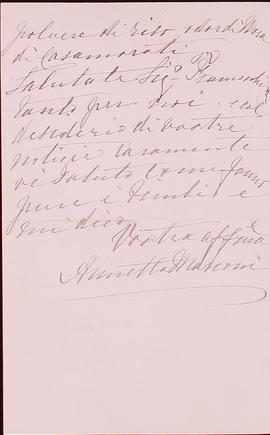 polvere di riso odor di
di Casamorati
Salutate Sigª
tanto per noi e col
desiderio di vostre
notizie caramente
vi saluto come fanno
pure i bimbi e
mi dico
Vostra affma
Annetta Marconi